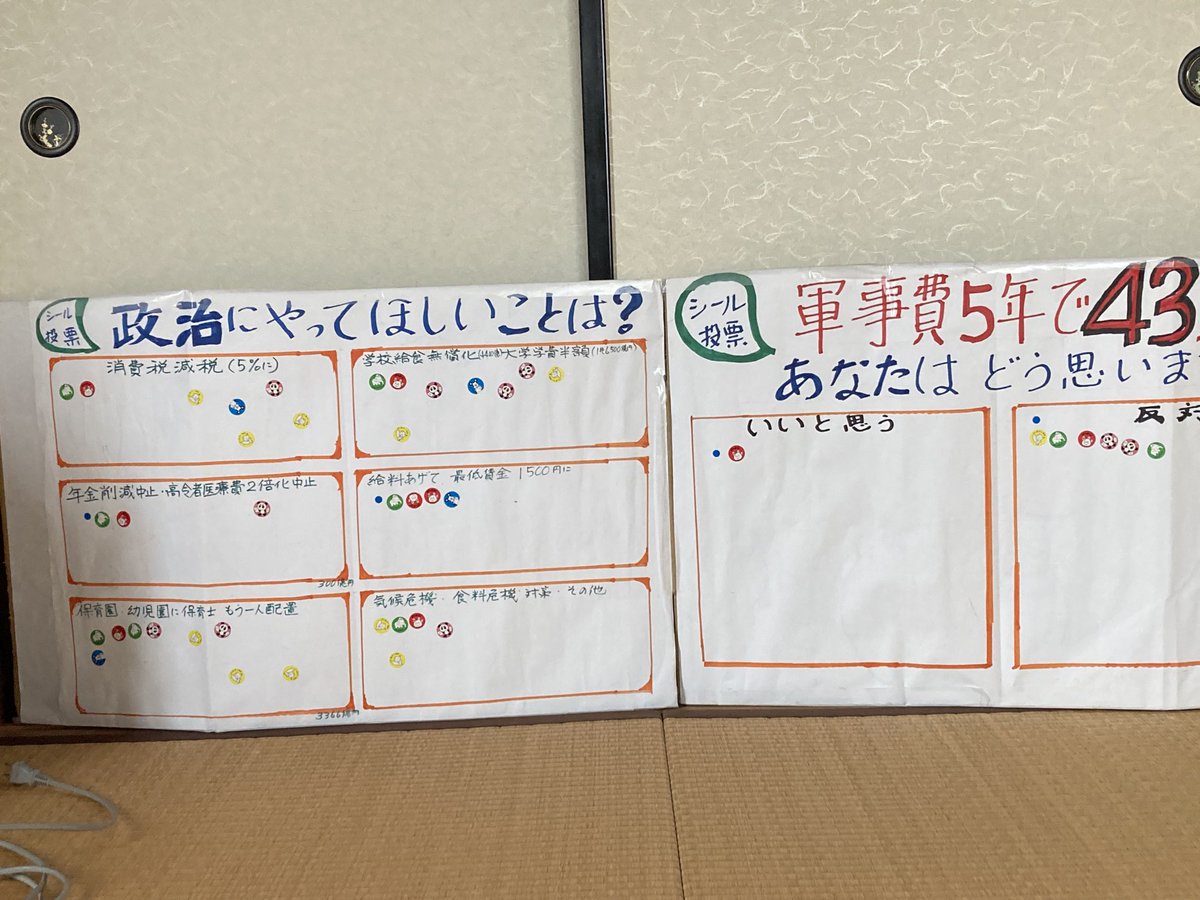 シール
投票
政治にやってほしいことは?
消費税減税(5%に)
学校給食無償化 大学学費半額
年金削減中止・高令者医療費2倍化中止
給料あげて 最低賃金1500円に
300億円
保育園 幼児園に保育士 もう一人配置
気候危機・食料危機 対策・その他
3366億円
シール
投票
軍事費5年で43
あなたは どう思いま
いいと思う
反対